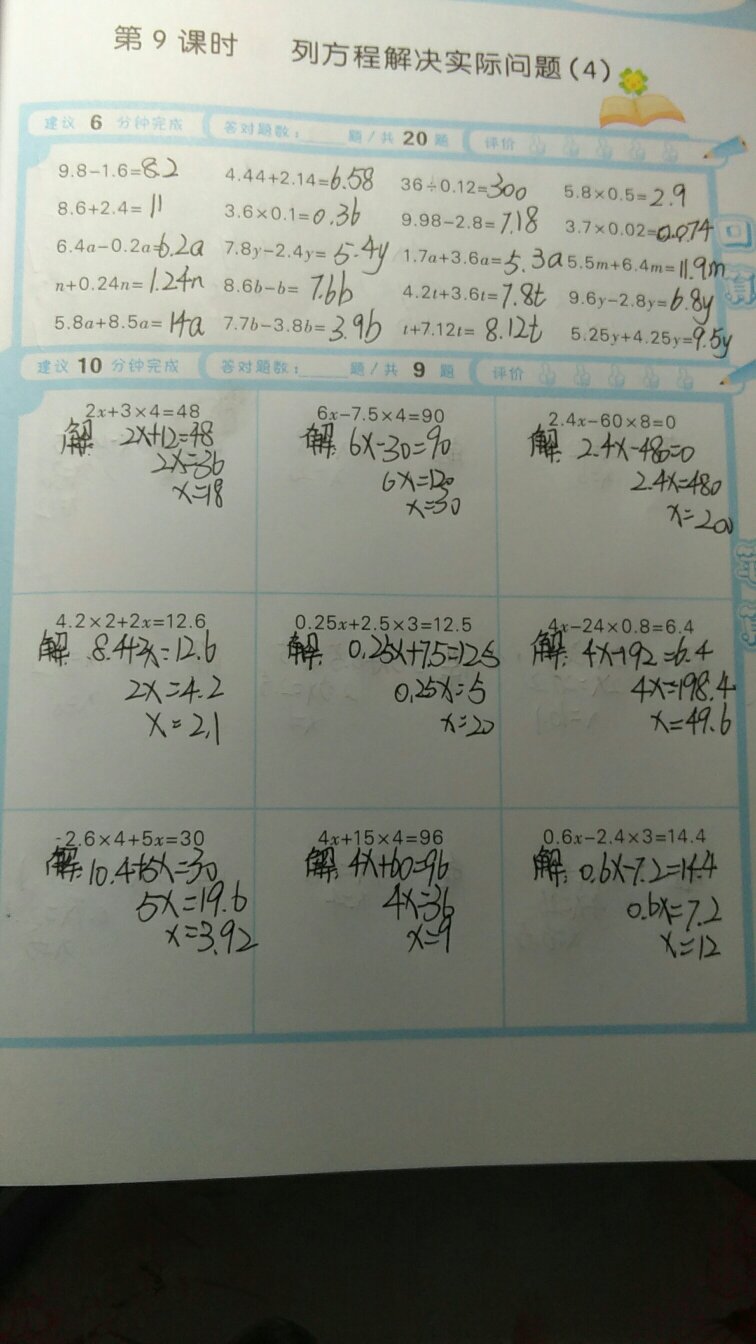 第9课时 列方程解决实际问题(4)
建议 6 分钟完成 答对题数:____题/共 20 题 评价
9.8-1.6=8.2 4.44+2.14=6.58 36÷0.12=300 5.8×0.5=2.9
8.6+2.4=11 3.6×0.1=0.36 9.98-2.8=7.18 3.7×0.02=0.074
6.4a-0.2a=6.2a 7.8y-2.4y=5.4y 1.7a+3.6a=5.3a 5.5m+6.4m=11.9m
n+0.24n=1.24n 8.6b-b=7.6b 4.2t+3.6t=7.8t 9.6y-2.8y=6.8y
5.8a+8.5a=14a 7.7b-3.8b=3.9b t+7.12t=8.12t 5.25y+4.25y=9.5y
建议 10 分钟完成 答对题数:____题/共 9 题 评价
2x+3×4=48 6x-7.5×4=90 2.4x-60×8=0
解: 2x+12=48 解: 6x-30=90 解: 2.4x-480=0
2x=36 6x=120 2.4x=480
x=18 x=30 x=200
4.2×2+2x=12.6 0.25x+2.5×3=12.5 4x-24×0.8=6.4
解: 8.4+2x=12.6 解: 0.25x+7.5=12.5 解: 4x-192=6.4
2x=4.2 0.25x=5 4x=198.4
x=2.1 x=20 x=49.6
2.6×4+5x=30 4x+15×4=96 0.6x-2.4×3=14.4
解: 10.4+5x=30 解: 4x+60=96 解: 0.6x-7.2=14.4
5x=19.6 4x=36 0.6x=7.2
x=3.92 x=9 x=12
口算